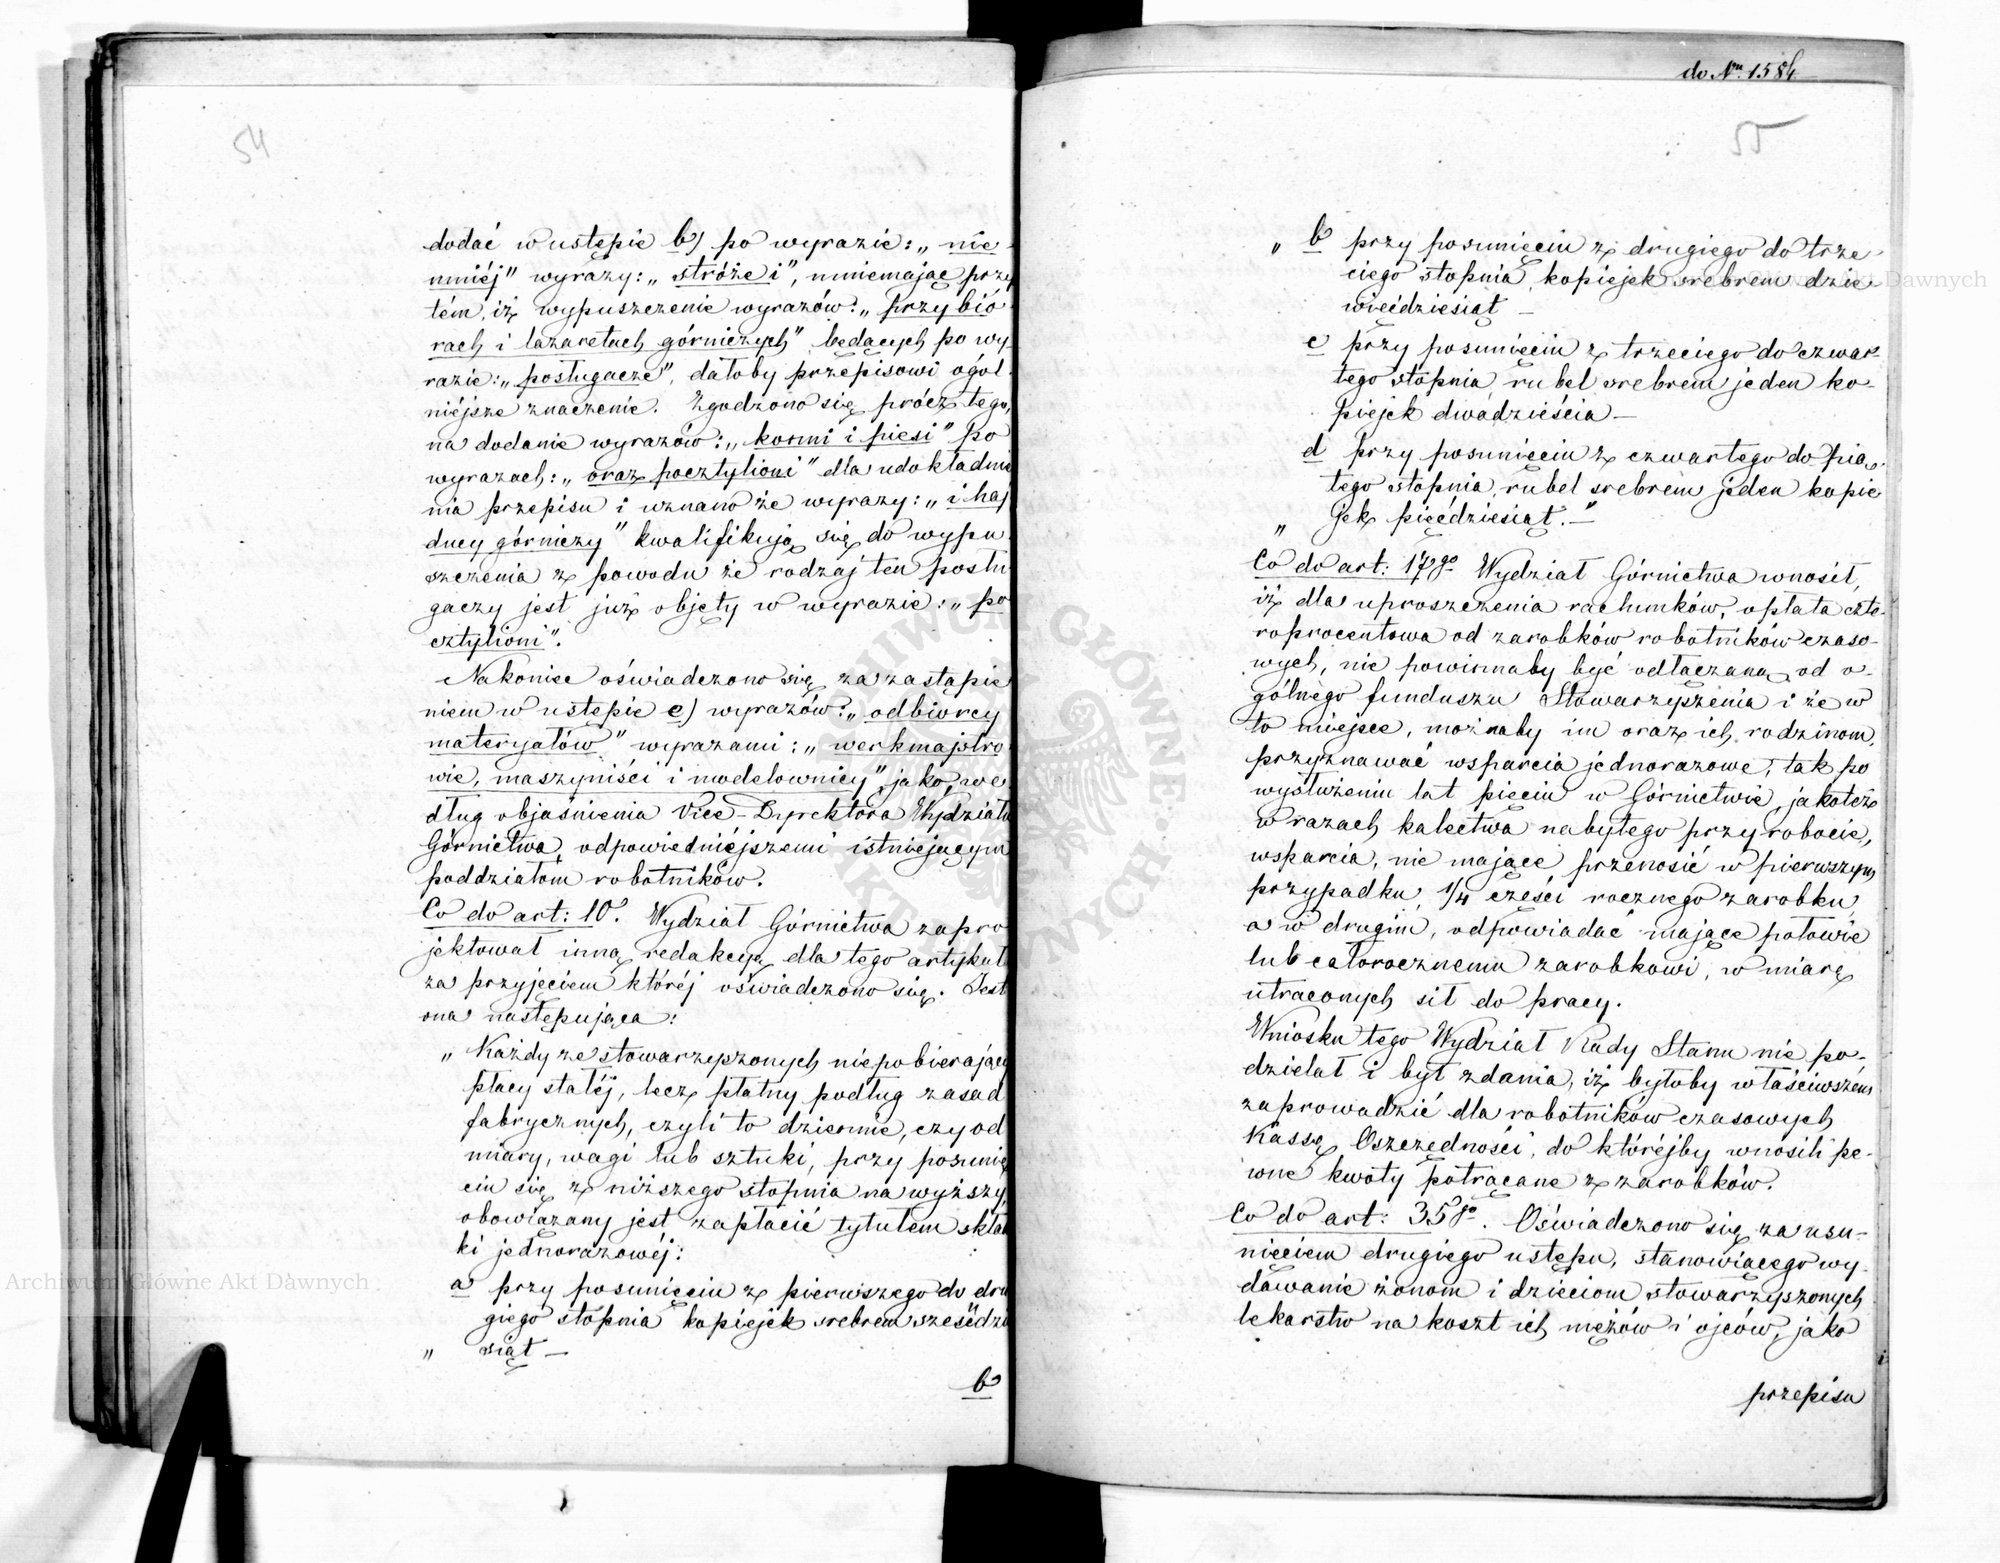 54
dodać w ustępie b) po wyrazie: „nie-
mniéj" wyrazy: „stróże i", mniemając przy
tém, iż wypuszczenie wyrazów: „przy bió-
rach i lazaretach górniczych" będących po wy-
razie: „posługacze", dałoby przepisowi ogól-
niéjsze znaczenie. Zgodzono się prócz tego,
na dodanie wyrazów: „konni i piesi" po
wyrazach: „oraz pocztylioni" dla udokładnie
nia przepisu i uznano że wyrazy: „i haj
ducy górniczy" kwalifikują się do wypu
szczenia z powodu że rodzaj ten posłu
gaczy jest już objęty w wyrazie: „po
cztylioni".
Nakoniec oświadczono się za zastąpie
niem w ustępie e) wyrazów: „odbiorcy
materyałów" wyrazami: „werkmajstro-
wie, maszyniści i modelownicy", jako, we
dług objaśnienia Vice-Dyrektora Wydziału
Górnictwa, odpowiedniéjszemi istniejącym
poddziałom robotników.
Co do art: 10°. Wydział Górnictwa zapro
jektował inną redakcyą dla tego artykułu
za przyjęciem któréj oświadczono się. Jest
ona następująca:
„Każdy ze stowarzyszonych niepobierający
płacy stałéj, lecz płatny podług zasad
fabrycznych, czyli to dziennie, czy od
miary, wagi lub sztuki, przy posunię
ciu się z niższego stopnia na wyższy,
obowiązany jest zapłacić tytułem skład
ki jednorazowéj:
a przy posunięciu z pierwszego do dru
giego stopnia kopiejek srebrem sześćdzie
„ siąt —
b
do Nru 1584
55
„ b przy posunięciu z drugiego do trze-
ciego stopnia, kopiejek srebrem dzie-
więćdziesiąt —
c przy posunięciu z trzeciego do czwar-
tego stopnia, rubel srebrem jeden ko-
piejek dwadzieścia —
d przy posunięciu z czwartego do pią-
tego stopnia, rubel srebrem jeden kopie
„ jek pięćdziesiąt. —"
Co do art: 17go Wydział Górnictwa wnosił,
iż dla uproszczenia rachunków, opłata czte-
roprocentowa od zarobków robotników czaso-
wych, nie powinnaby być odłączaną od o-
gólnego funduszu Stowarzyszenia i że w
to miejsce, możnaby im oraz ich rodzinom,
przyznawać wsparcia jednorazowe, tak po
wysłużeniu lat pięciu w Górnictwie, jakoteż
w razach kalectwa nabytego przy robocie,
wsparcia, nie mające przenosić w pierwszym
przypadku, 1/4 części rocznego zarobku,
a w drugim, odpowiadać mające połowie
lub całorocznemu zarobkowi, w miarę
utraconych sił do pracy.
Wniosku tego Wydział Rady Stanu nie po-
dzielał i był zdania, iż byłoby właściwszém
zaprowadzić dla robotników czasowych
Kassę Oszczędności, do któréjby wnosili pe-
wne kwoty potrącane z zarobków.
Co do art: 35go. Oświadczono się za usu-
nięciem drugiego ustępu, stanowiącego wy-
dawanie żonom i dzieciom stowarzyszonych
lekarstw na koszt ich mężów i ojców, jako
przepisu
Archiwum Główne Akt Dawnych
ARCHIWUM GŁÓWNE AKT DAWNYCH